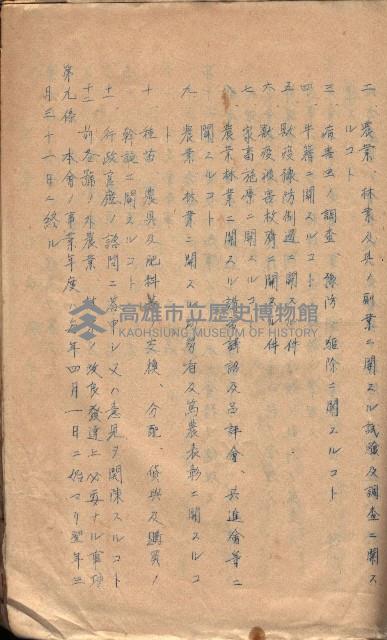 二、農業、林業及其ノ副業ニ関スル試験及調査ニ関ス
ルコト
三、病害虫ノ調査、予防、駆除ニ関スルコト
四、牛籍ニ関スルコト
五、獣疫予防制遏ニ関スル件
六、獣疫被害救済ニ関スル件
七、家畜施療ニ関スルコト
八、農業林業ニ関スル講習講話及品評会、共進会等ニ
関スルコト
九、農業、林業ニ関スル功労者及篤農表彰ニ関スルコ
ト
十、種苗、農具及肥料等ノ交換、分配、貸与及購買ノ
斡旋ニ関スルコト
十一、行政官庁ノ諮問ニ答申シ又ハ意見ヲ開陳スルコト
十二、前各号ノ外農業、林業ノ改良発達上必要ナル事項
第九條 本会ノ事業年度ハ毎年四月一日ニ始マリ翌年三
月三十一日ニ終ル
高雄市立歷史博物館
KAOHSIUNG MUSEUM OF HISTORY